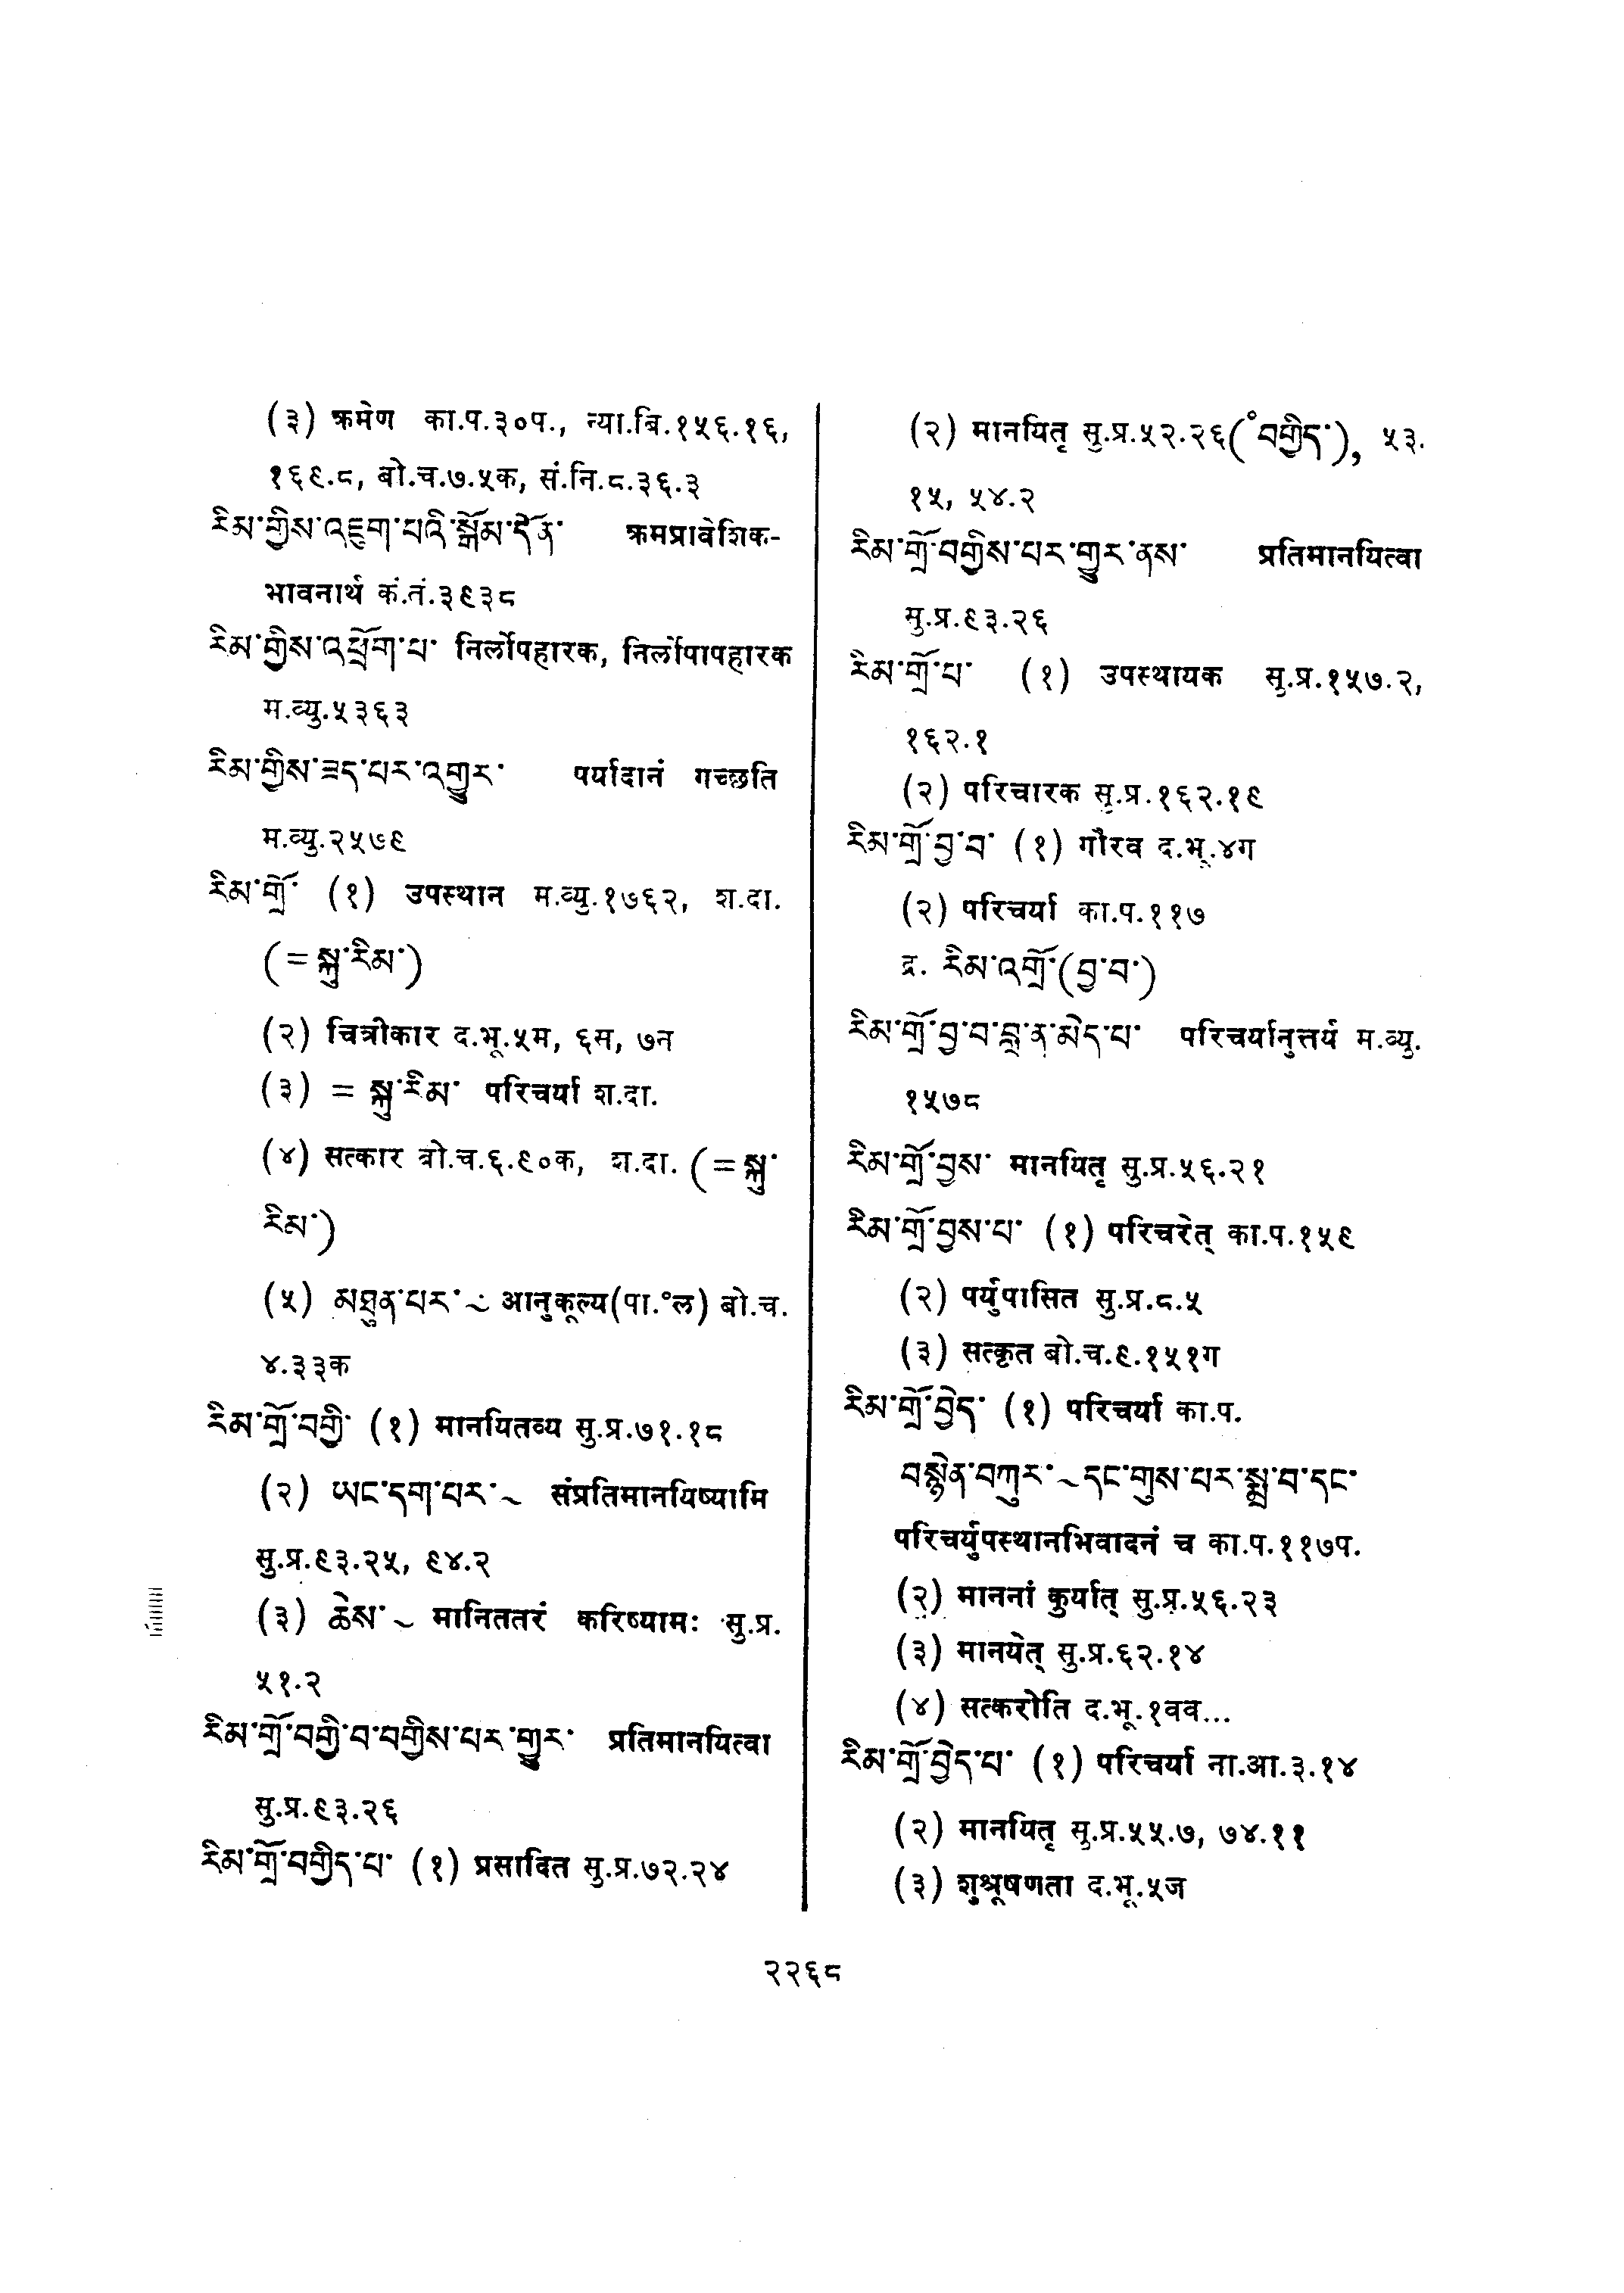 (३) क्रमेण का.प.३०प., न्या.बि.१५६.१६,
१६९.८, बो.च.७.५क, सं.नि.८.३६.३
རིམ་གྱིས་འཇུག་པའི་སྒོམ་དོན་ क्रमप्रावेशिक-
भावनार्थ कं.तं.३९३८
རིམ་གྱིས་འཕྲོག་པ་ निर्लोपहारक, निर्लोपापहारक
म.व्यु.५३६३
རིམ་གྱིས་ཟད་པར་འགྱུར་ पर्यादानं गच्छति
म.व्यु.२५७९
རིམ་གྲོ་ (१) उपस्थान म.व्यु.१७६२, श.दा.
(=སྐུ་རིམ་)
(२) चित्रीकार द.भू.५म, ६स, ७न
(३) = སྐུ་རིམ་ परिचर्या श.दा.
(४) सत्कार बो.च.६.९०क, श.दा. (=སྐུ་
རིམ་)
(५) མཐུན་པར་~ आनुकूल्य(पा.॰ल) बो.च.
४.३३क
རིམ་གྲོ་བགྱི་ (१) मानयितव्य सु.प्र.७१.१८
(२) ཡང་དག་པར་~ संप्रतिमानयिष्यामि
सु.प्र.९३.२५, ९४.२
(३) ཆེས་~ मानिततरं करिष्यामः सु.प्र.
५१.२
རིམ་གྲོ་བགྱི་བ་བགྱིས་པར་གྱུར་ प्रतिमानयित्वा
सु.प्र.९३.२६
རིམ་གྲོ་བགྱིད་པ་ (१) प्रसादित सु.प्र.७२.२४
(२) मानयितृ सु.प्र.५२.२६(॰བགྱིད་), ५३.
१५, ५४.२
རིམ་གྲོ་བགྱིས་པར་གྱུར་ནས་ प्रतिमानयित्वा
सु.प्र.९३.२६
རིམ་གྲོ་པ་ (१) उपस्थायक सु.प्र.१५७.२,
१६२.१
(२) परिचारक सु.प्र.१६२.१९
རིམ་གྲོ་བྱ་བ་ (१) गौरव द.भू.४ग
(२) परिचर्या का.प.११७
द्र. རིམ་འགྲོ་(བྱ་བ་)
རིམ་གྲོ་བྱ་བ་བླ་ན་མེད་པ་ परिचर्यानुत्तर्य म.व्यु.
१५७८
རིམ་གྲོ་བྱས་ मानयितृ सु.प्र.५६.२१
རིམ་གྲོ་བྱས་པ་ (१) परिचरेत् का.प.१५९
(२) पर्युपासित सु.प्र.८.५
(३) सत्कृत बो.च.९.१५१ग
རིམ་གྲོ་བྱེད་ (१) परिचर्या का.प.
བསྙེན་བཀུར་~དང་གུས་པར་སྨྲ་བ་དང་
परिचर्युपस्थानभिवादनं च का.प.११७प.
(२) माननां कुर्यात् सु.प्र.५६.२३
(३) मानयेत् सु.प्र.६२.१४
(४) सत्करोति द.भू.१वव...
རིམ་གྲོ་བྱེད་པ་ (१) परिचर्या ना.आ.३.१४
(२) मानयितृ सु.प्र.५५.७, ७४.११
(३) शुश्रूषणता द.भू.५ज
२२६८